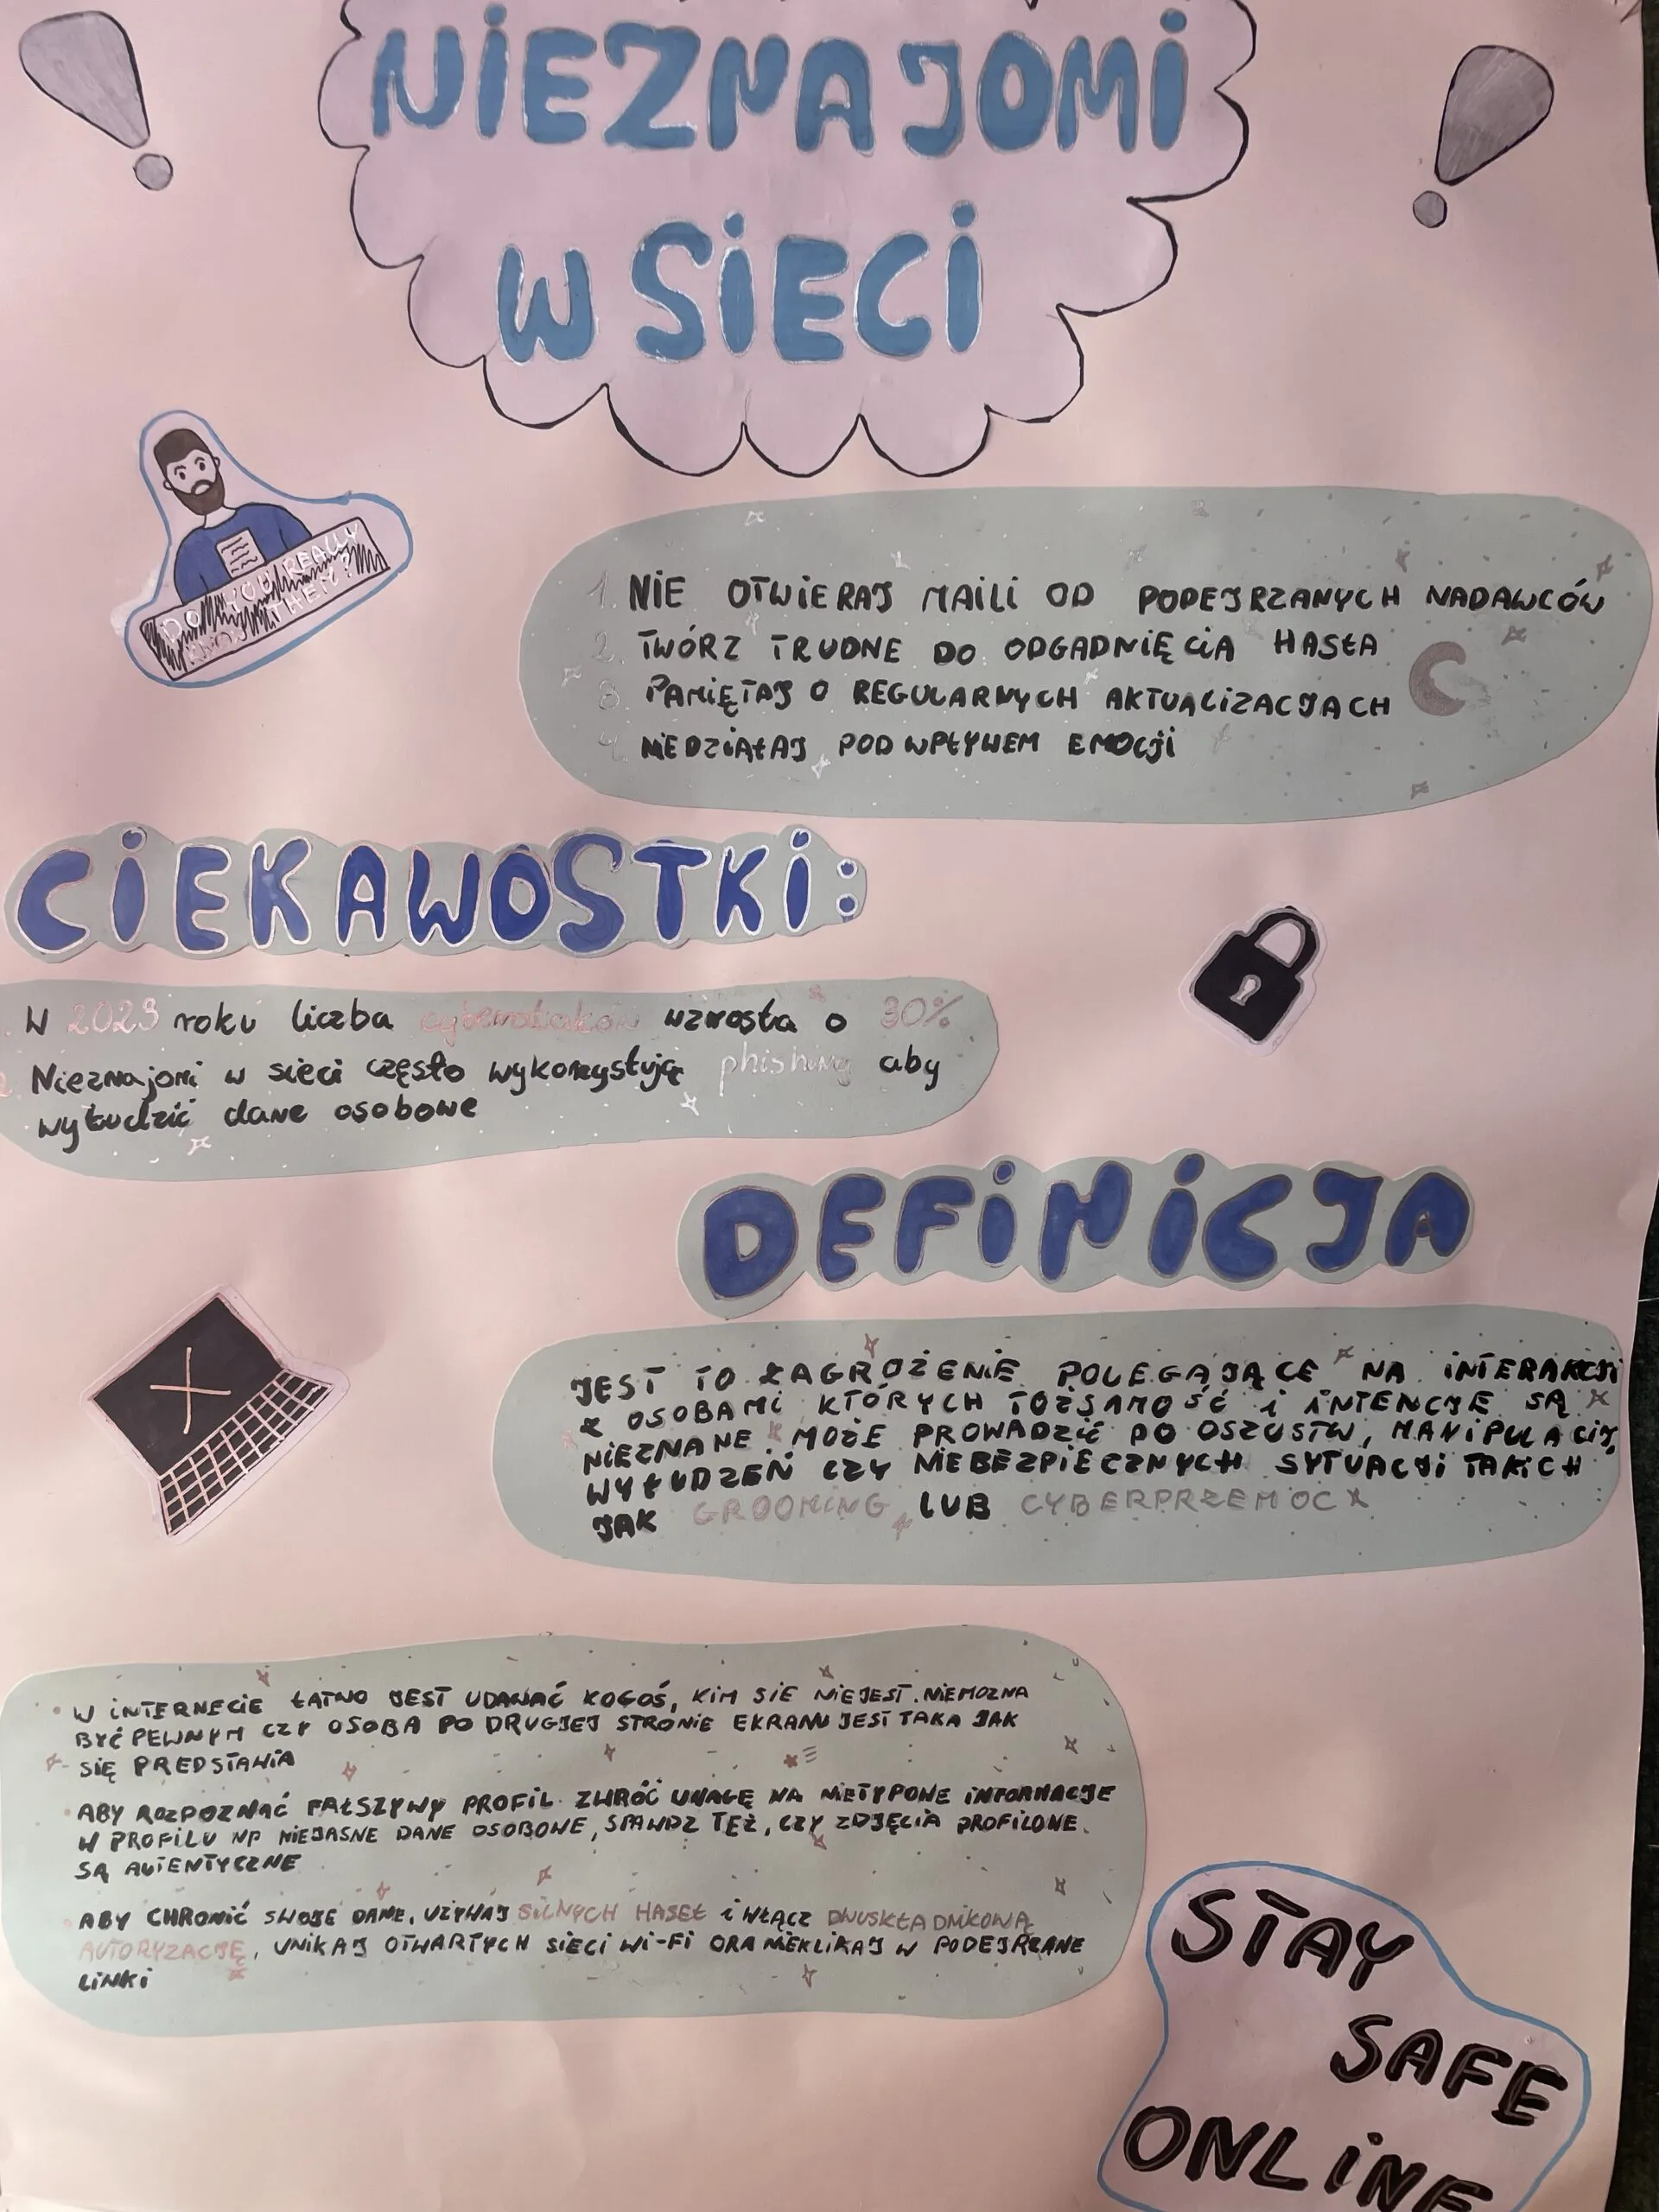 NIEZNAJOMI
W SIECI
DO YOU REALLY
KNOW THEM?
1. NIE OTWIERAJ MAILI OD PODEJRZANYCH NADAWCÓW
2. TWÓRZ TRUDNE DO ODGADNIĘCIA HASŁA
3. PAMIĘTAJ O REGULARNYCH AKTUALIZACJACH
4. NIE DZIAŁAJ POD WPŁYWEM EMOCJI
CIEKAWOSTKI:
. W 2023 roku liczba cyberataków wzrosła o 30%
2. Nieznajomi w sieci często wykorzystują phishing aby
wyłudzić dane osobowe
DEFINICJA
JEST TO ZAGROŻENIE POLEGAJĄCE NA INTERAKCJI
Z OSOBAMI KTÓRYCH TOŻSAMOŚĆ I INTENCJE SĄ
NIEZNANE. MOŻE PROWADZIĆ DO OSZUSTW, MANIPULACJI,
WYŁUDZEŃ CZY NIEBEZPIECZNYCH SYTUACJI TAKICH
JAK GROOMING LUB CYBERPRZEMOC
• W INTERNECIE ŁATWO JEST UDAWAĆ KOGOŚ, KIM SIE NIE JEST. NIEMOZNA
BYĆ PEWNYM CZY OSOBA PO DRUGIEJ STRONIE EKRANU JEST TAKA JAK
SIĘ PREDSTAWIA
• ABY ROZPOZNAĆ FAŁSZYWY PROFIL ZWRÓĆ UWAGĘ NA NIETYPOWE INFORMACJE
W PROFILU NP NIEJASNE DANE OSOBOWE, SPAWDZ TEŻ, CZY ZDJĘCIA PROFILOWE
SĄ AUTENTYCZNE
• ABY CHRONIĆ SWOJE DANE, UŻYWAJ SILNYCH HASEŁ I WŁĄCZ DWUSKŁADNIKOWĄ
AUTORYZACJĘ, UNIKAJ OTWARTYCH SIECI WI-FI ORA NIEKLIKAJ W PODEJRZANE
LINKI
STAY
SAFE
ONLINE